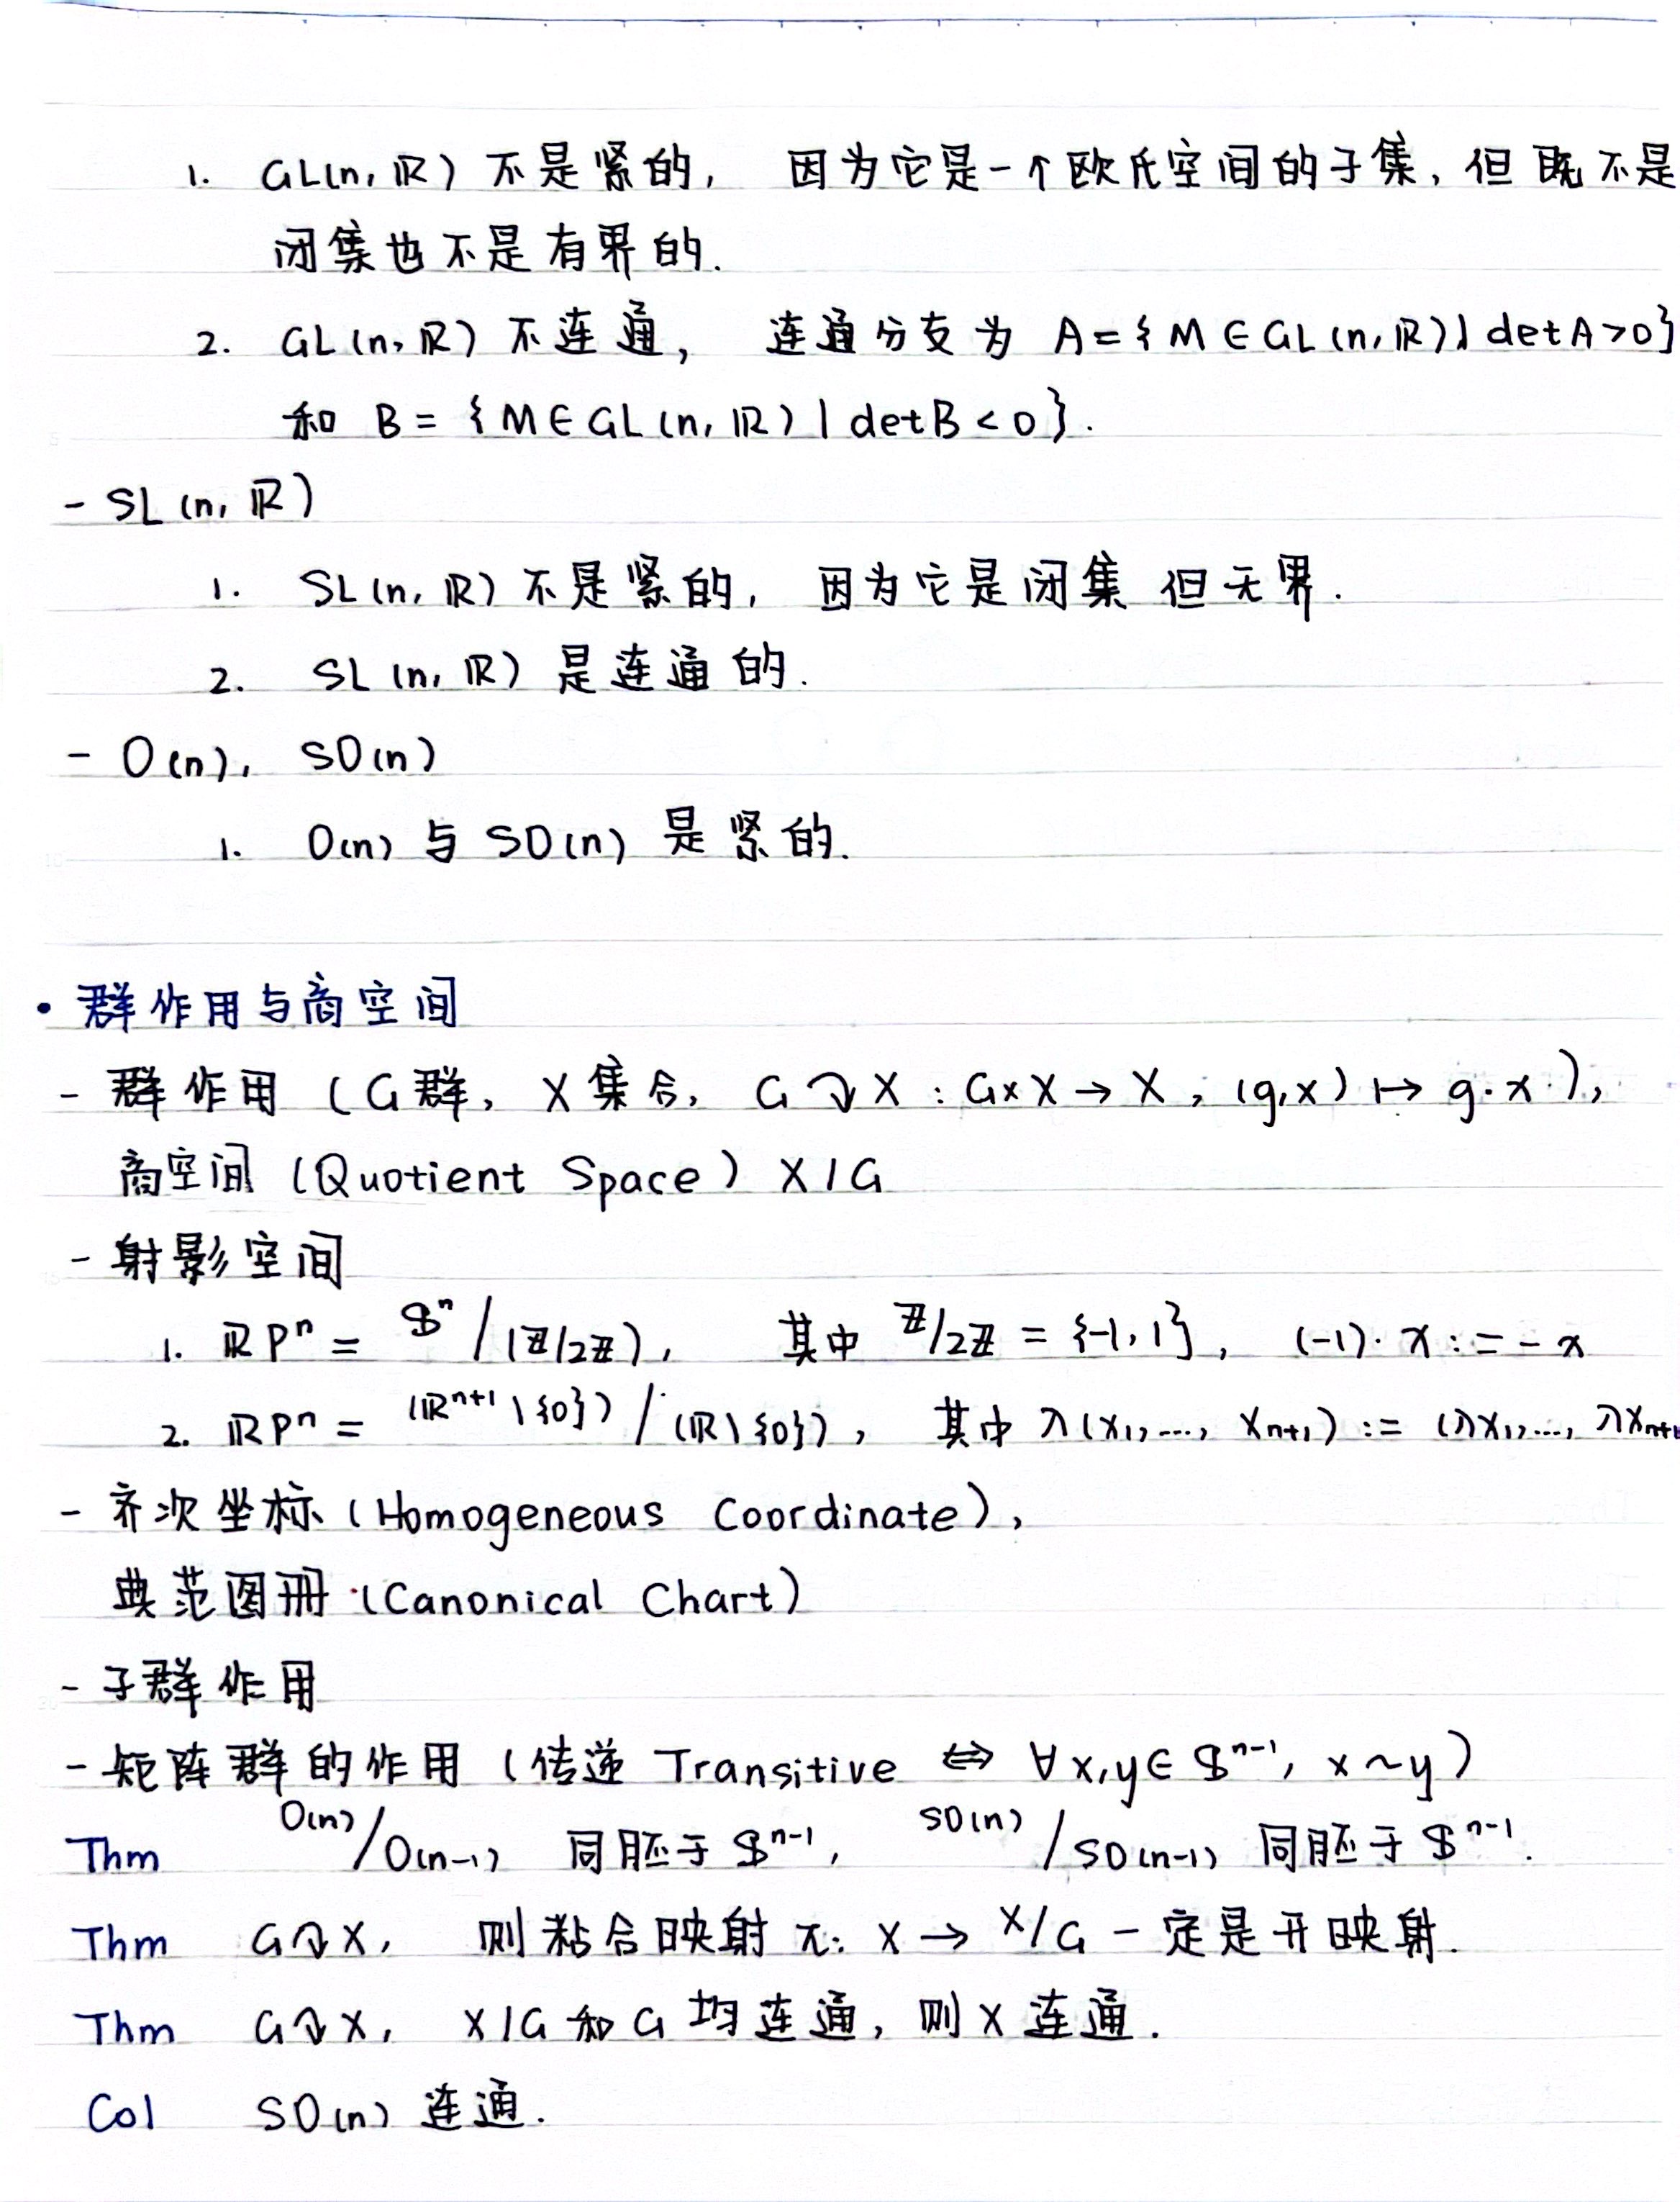 1. GL(n, ℝ) 不是紧的, 因为它是一个欧氏空间的子集, 但既不是
闭集也不是有界的.
2. GL(n, ℝ) 不连通, 连通分支为 A = {M ∈ GL(n, ℝ) | detA > 0}
和 B = {M ∈ GL(n, ℝ) | detB < 0}.
- SL(n, ℝ)
1. SL(n, ℝ) 不是紧的, 因为它是闭集 但无界.
2. SL(n, ℝ) 是连通的.
- O(n), SO(n)
1. O(n) 与 SO(n) 是紧的.
• 群作用与商空间
- 群作用 (G群, X集合, G ↷ X : G×X → X, (g,x) ↦ g·x),
商空间 (Quotient Space) X/G
- 射影空间
1. ℝPⁿ = 𝕊ⁿ/(ℤ/2ℤ), 其中 ℤ/2ℤ = {-1, 1}, (-1)·x := -x
2. ℝPⁿ = (ℝⁿ⁺¹\{0})/(ℝ\{0}), 其中 λ(x₁,..., xₙ₊₁) := (λx₁,..., λxₙ₊₁
- 齐次坐标 (Homogeneous Coordinate),
典范图册 (Canonical Chart)
- 子群作用
- 矩阵群的作用 (传递 Transitive ⇔ ∀x,y ∈ 𝕊ⁿ⁻¹, x ~ y)
Thm O(n)/O(n-1) 同胚于 𝕊ⁿ⁻¹, SO(n)/SO(n-1) 同胚于 𝕊ⁿ⁻¹.
Thm G↷X, 则粘合映射 π: X → X/G 一定是开映射.
Thm G↷X, X/G 和 G 均连通, 则 X 连通.
Col SO(n) 连通.